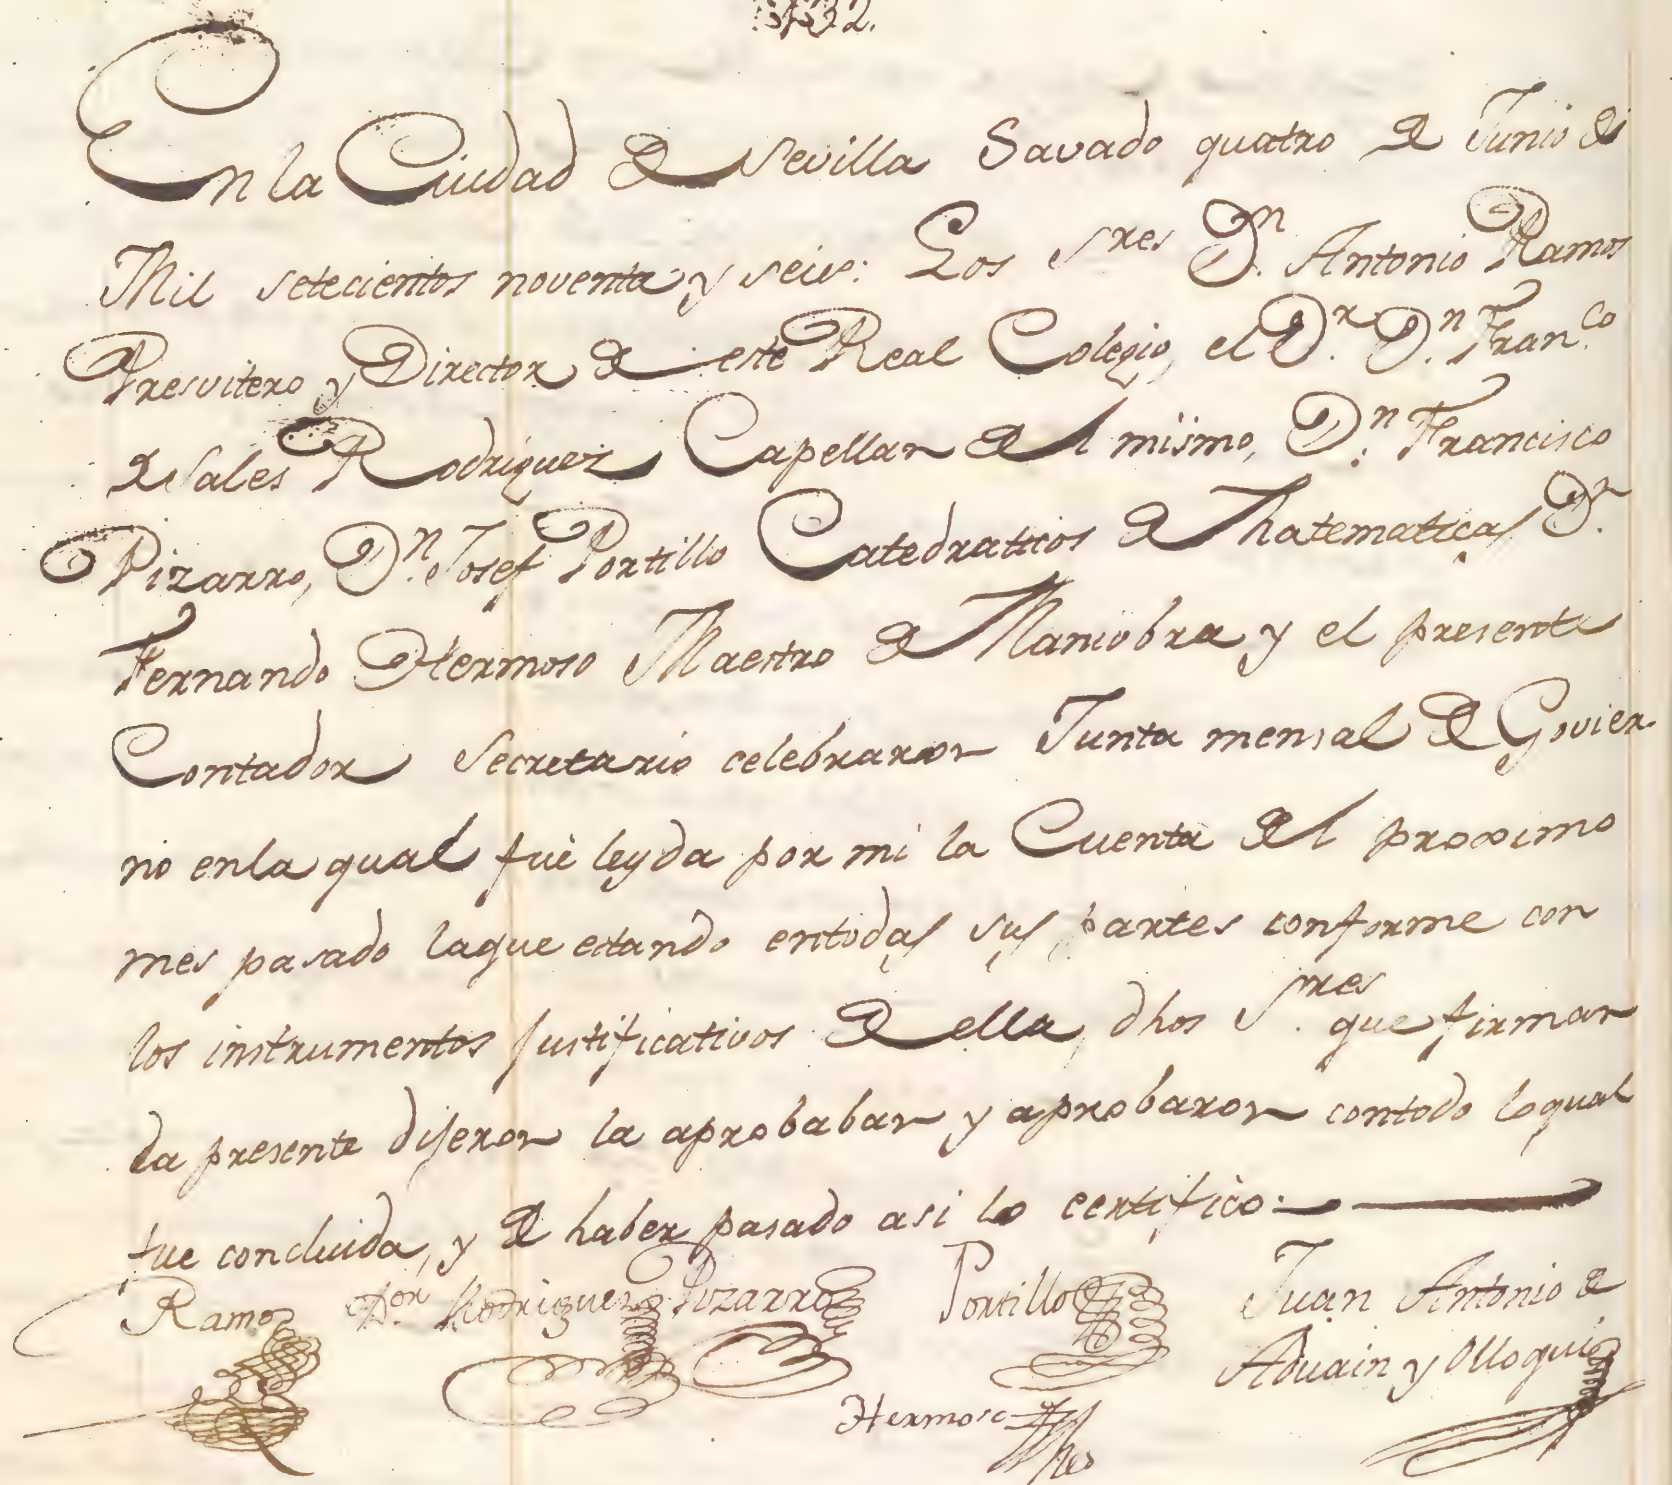 En la Ciudad de Sevilla Savado quatro de Junio de
Mil setecientos noventa y seis: Los Sres Dn. Antonio Ramos
Presvitero y Director de este Real Colegio, el Dr. Dn. Franco.
de Sales Rodriguez Capellan del mismo, Dn. Francisco
Pizarro, Dn. Josef Portillo Catedraticos de Matematicas Dn.
Fernando Hermoso Maestro de Maniobra y el presente
Contador Secretario celebraron Junta mensal de Govier-
no enla qual fué leyda por mi la Cuenta del proximo
mes pasado laque estando entodas sus partes conforme con
los instrumentos justificativos de ella, dhos Sres. que firman
la presente dijeron la aprobaban y aprobaron contodo loqual
fue concluida, y de haber pasado asi lo certifico:
Ramos Dor. Rodriguez Pizarro Portillo Juan Antonio de
Aduain y Olloqui
Hermoso